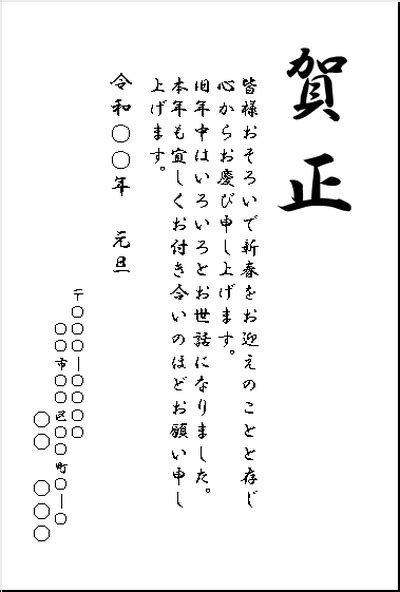 賀正
皆様おそろいで新春をお迎えのことと存じ
心からお慶び申し上げます。
旧年中はいろいろとお世話になりました。
本年も宜しくお付き合いのほどお願い申し
上げます。
令和〇〇年　元旦
〒〇〇〇ー〇〇〇〇
〇〇市〇〇区〇〇町〇ー〇
〇〇　〇〇〇